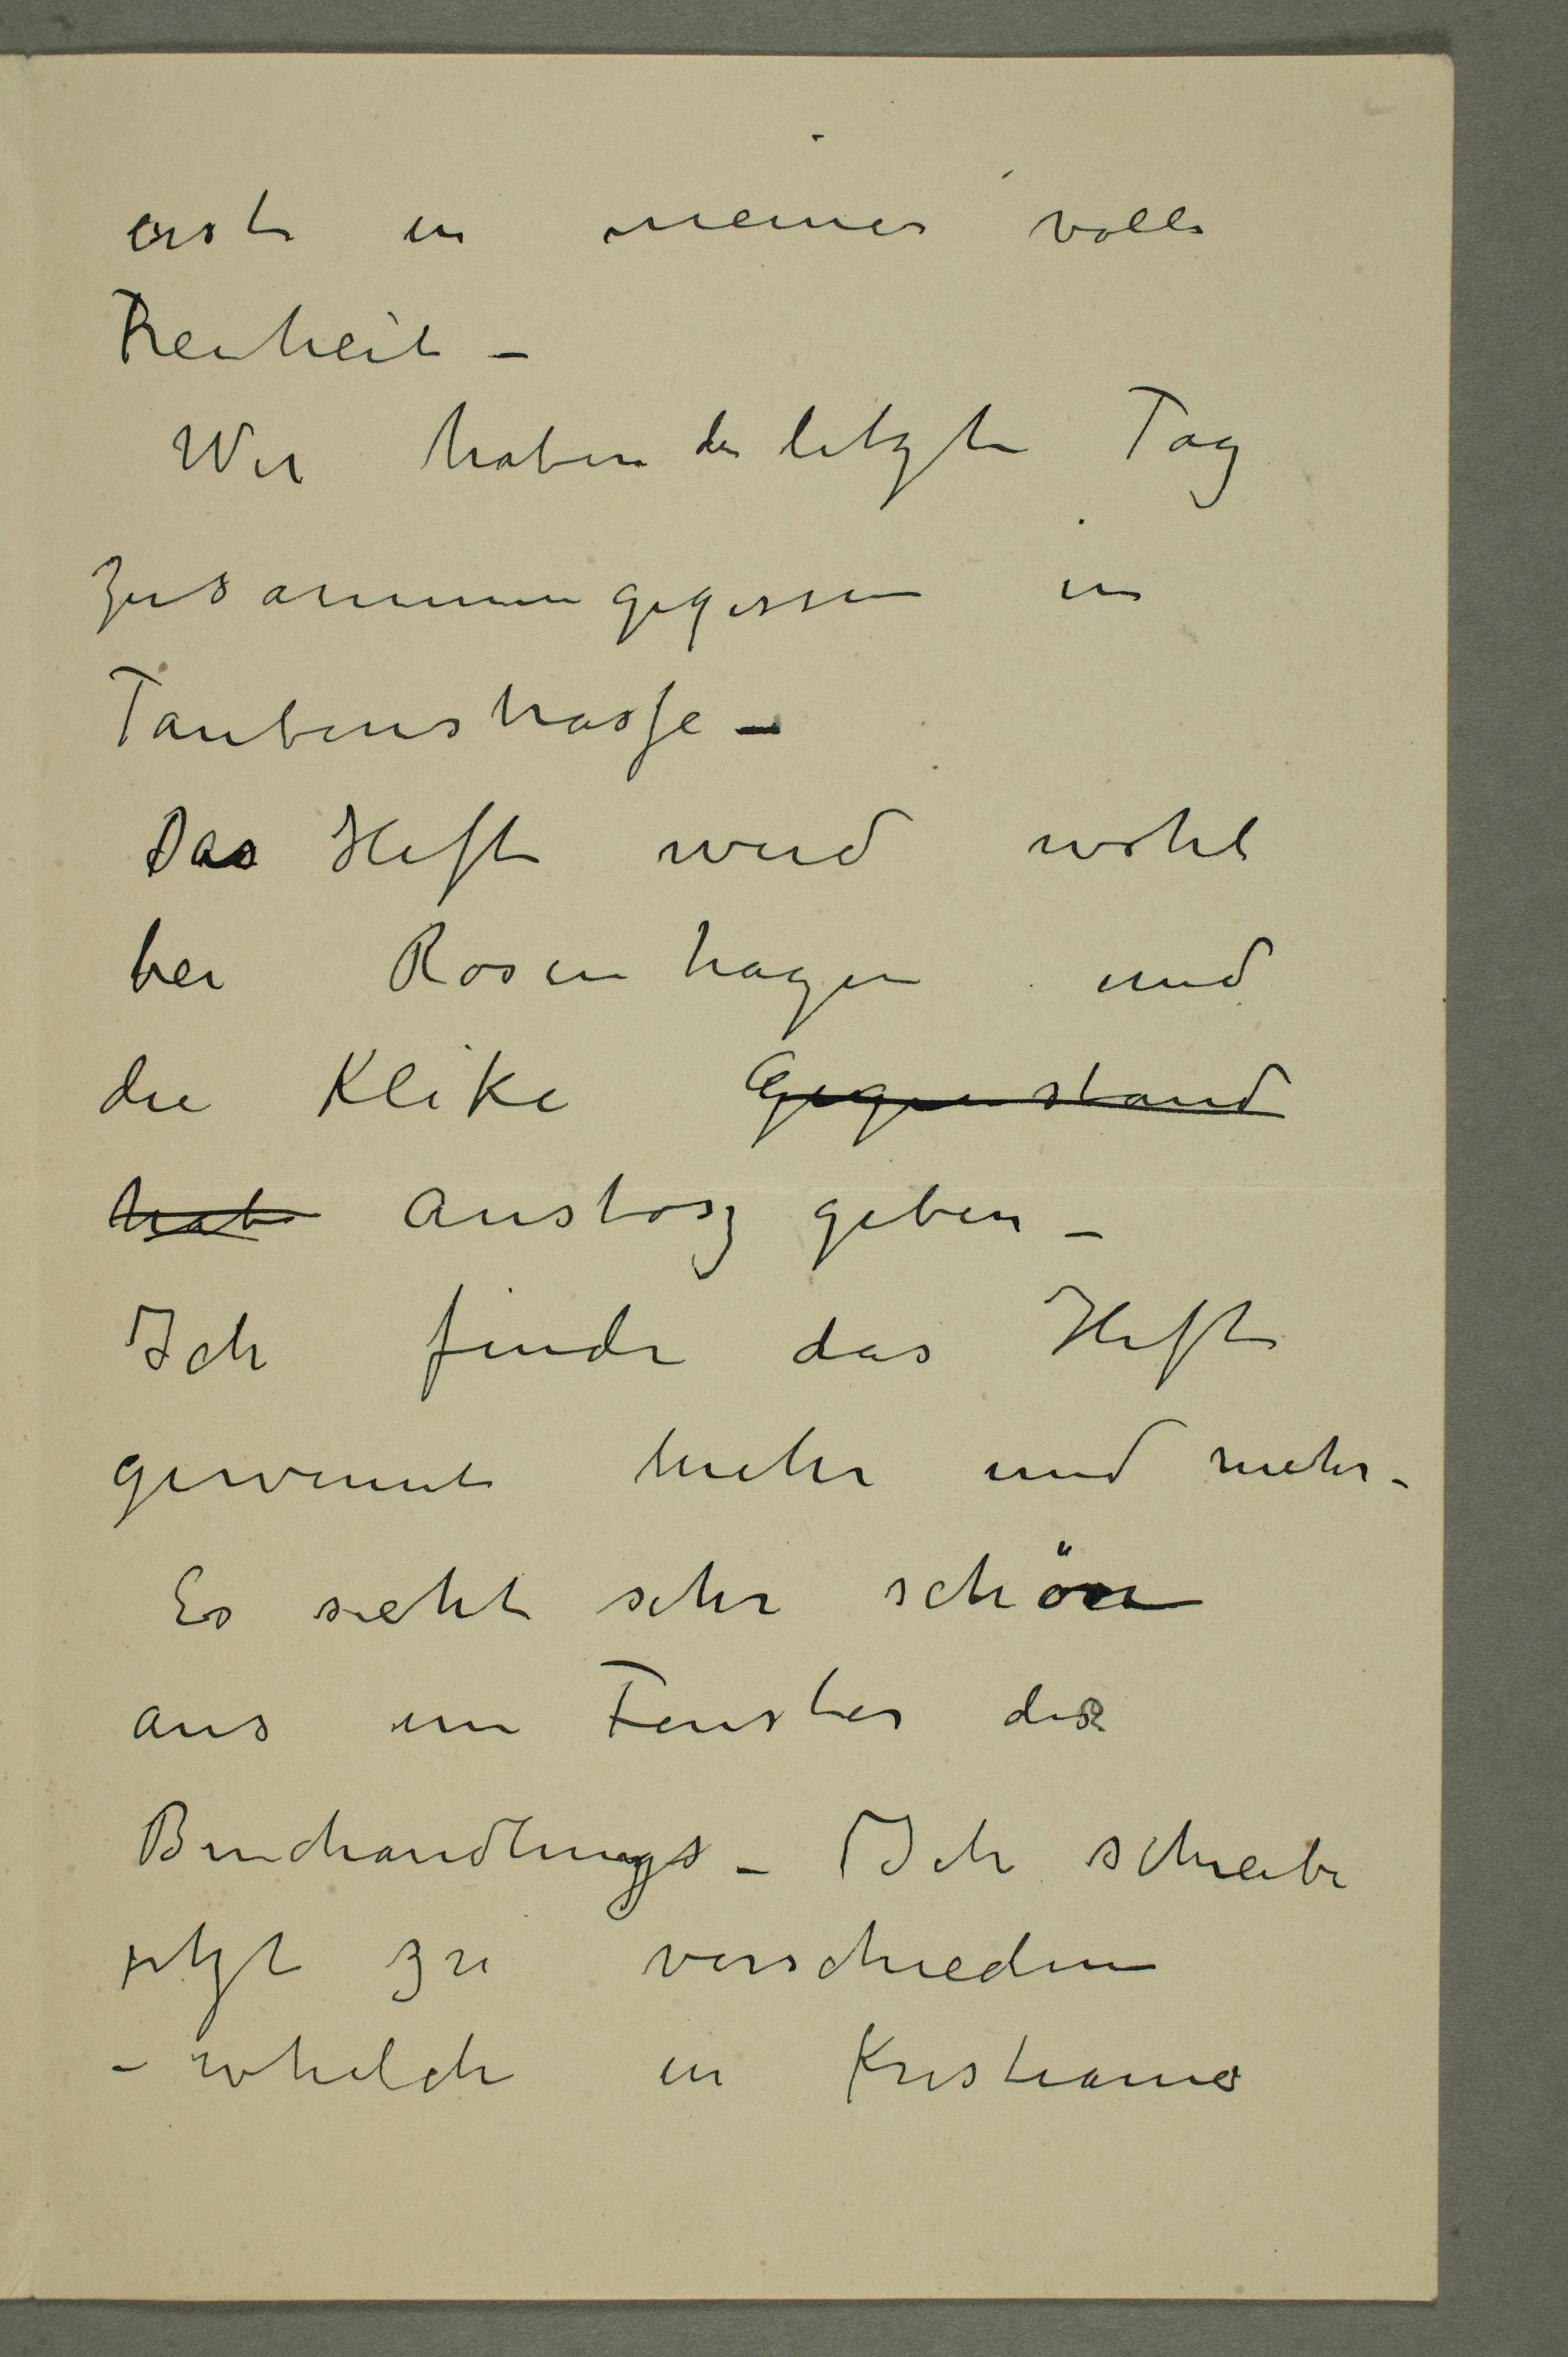 erst in meiner volle
Freiheit –
Wir haben den letzte Tag
zusammengegessen in
Taubenstrasse –
Das Heft wird wohl
bei Rosenhagen und
die Klike Gegenstand
hat Anstosz geben –
Ich finde das Heft
gewinnt mehr und mehr –
Es sieht sehr schön
aus im Fenster der
Buchandlung – Ich schreibe
jetzt zu verschiedene
– whelche in Kristiania